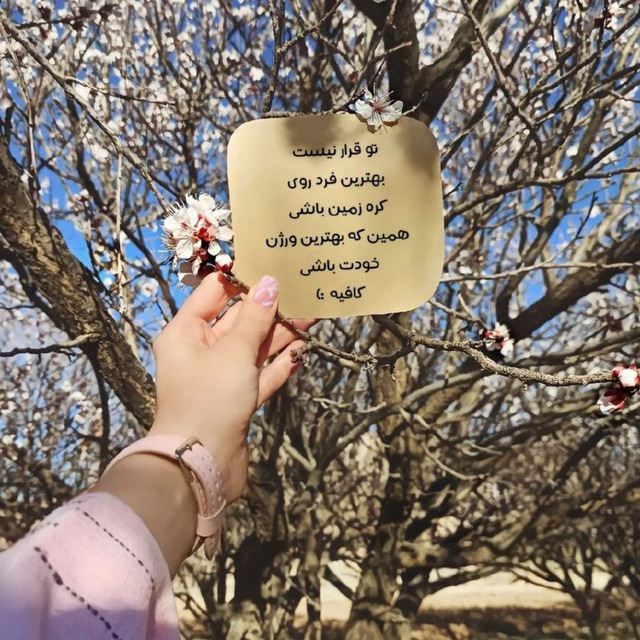 تو قرار نیست
بهترین فرد روی
کره زمین باشی
همین که بهترین ورژن
خودت باشی
کافیه :)